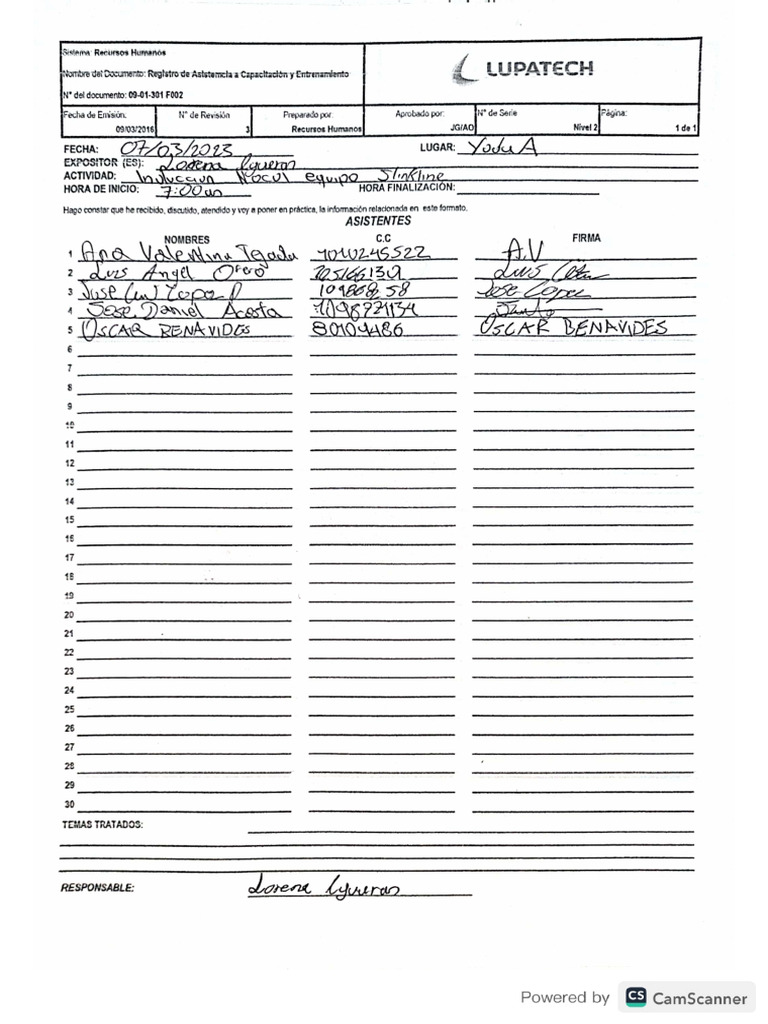 Sistema: Recursos Humanos
Nombre del Documento: Registro de Asistencia a Capacitación y Entrenamiento
N° del documento: 09-01-301 F002
LUPATECH
Fecha de Emisión: 09/03/2016
N° de Revisión 3
Preparado por: Recursos Humanos
Aprobado por: JG/AO
N° de Serie Nivel 2
Página: 1 de 1
FECHA: 07/03/2023 LUGAR:
EXPOSITOR (ES): Lorena
ACTIVIDAD: Induccion equipo Slinkline
HORA DE INICIO: 7:00am HORA FINALIZACIÓN:
Hago constar que he recibido, discutido, atendido y voy a poner en práctica, la información relacionada en este formato.
ASISTENTES
NOMBRES C.C FIRMA
1 Ana Valentina Tejada 1010245522 A.V
2 Luis Angel Otero Luis
3 Jose Lopez Jose Lopez
4 Jose Daniel Acosta
5 OSCAR BENAVIDES 80109486 OSCAR BENAVIDES
6
7
8
9
10
11
12
13
14
15
16
17
18
19
20
21
22
23
24
25
26
27
28
29
30
TEMAS TRATADOS:
RESPONSABLE: Lorena
Powered by CS CamScanner